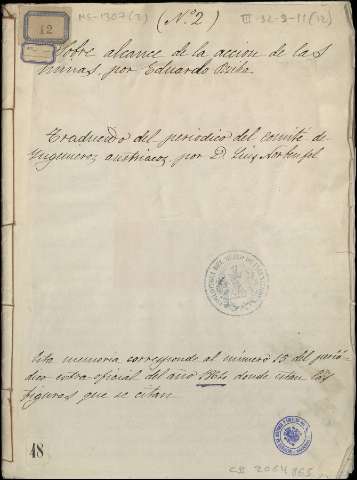 12
MS-1307(2)
(Nº 2)
III-32-9-11(12)
Sobre alcance de la accion de las
minas. por Eduardo
Traducido del periodico del comité de
Ingenieros austriacos por D. Luis
Esta memoria corresponde al número 15 del perió-
dico extra oficial del año donde estan las
figuras que se citan
48